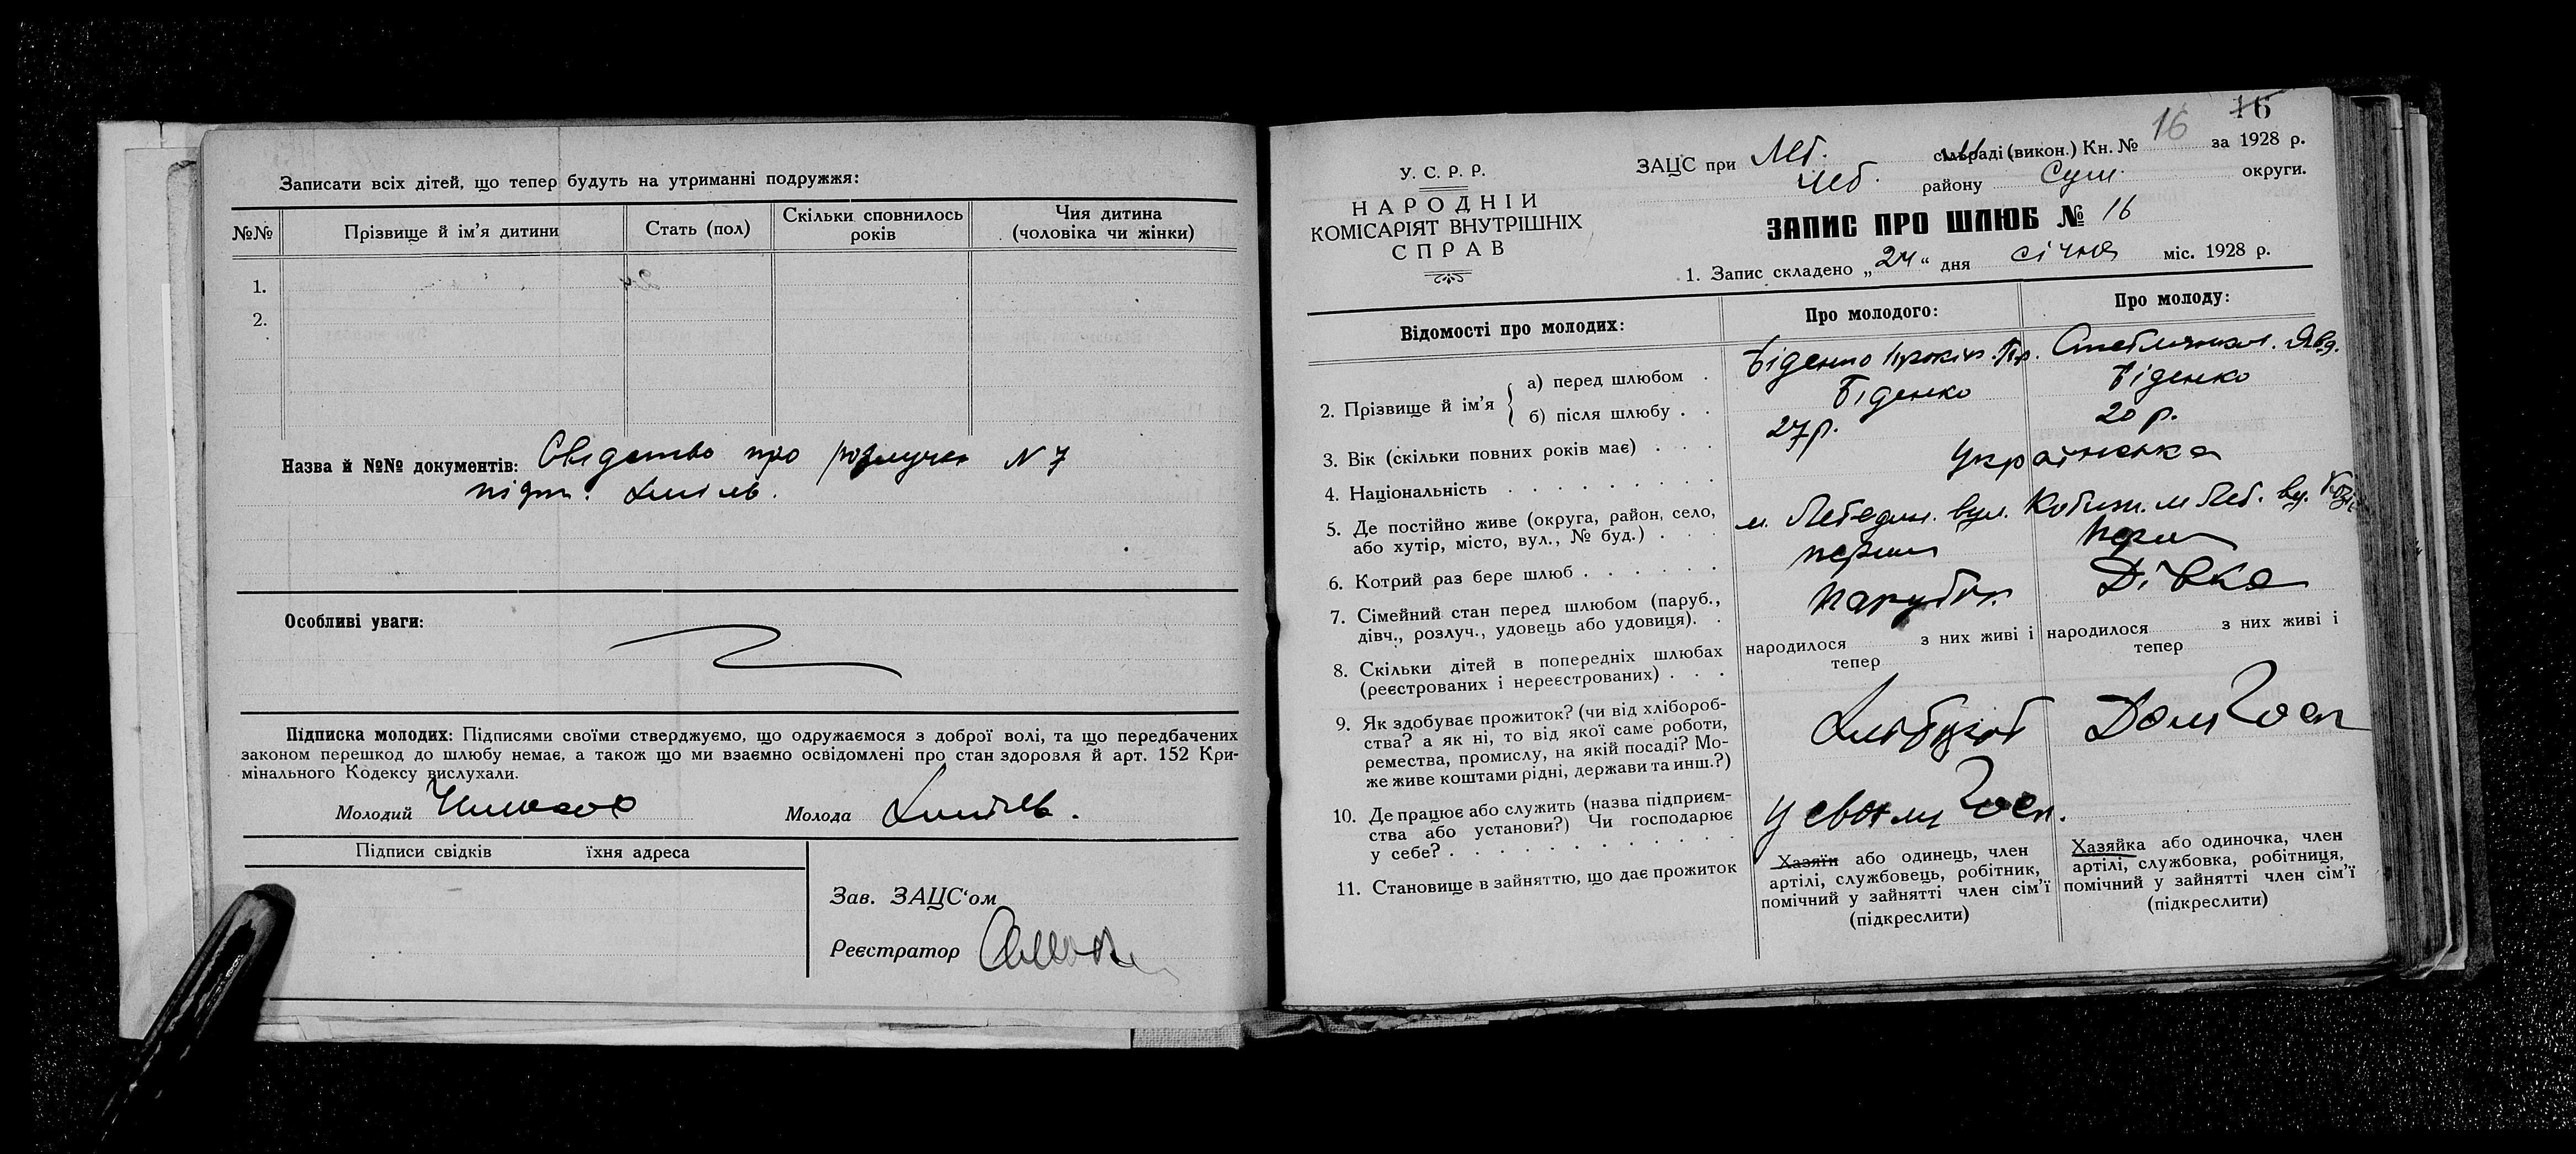 Записати всіх дітей, що тепер будуть на утриманні подружжя:
№№ Прізвище й ім'я дитини Стать (пол) Скільки сповнилось років Чия дитина (чоловіка чи жінки)
1.
2.
Назва й №№ документів: Свідоство про розлучен N 7
підп.
Особливі уваги:
Підписка молодих: Підписями своїми стверджуємо, що одружаємося з доброї волі, та що передбачених
законом перешкод до шлюбу немає, а також що ми взаємно освідомлені про стан здоровля й арт. 152 Кри-
мінального Кодексу вислухали.
Молодий Молода
Підписи свідків їхня адреса
Зав. ЗАЦС'ом
Реєстратор
16
16
У. С. Р. Р.
НАРОДНІЙ
КОМІСАРІЯТ ВНУТРІШНІХ
СПРАВ
ЗАЦС при Леб. сільраді (викон.) Кн. № за 1928 р.
Леб. району Сум. округи.
ЗАПИС ПРО ШЛЮБ № 16
1. Запис складено „24“ дня січня міс. 1928 р.
Відомості про молодих: Про молодого: Про молоду:
2. Прізвище й ім'я
а) перед шлюбом . Біденко
б) після шлюбу . . Біденко Біденко
3. Вік (скільки повних років має) . . . 27 р. 20 р.
4. Національність . . . . . . . . . українська
5. Де постійно живе (округа, район, село,
або хутір, місто, вул., № буд.) . . . м. Лебедин. вул. м Леб. ву.
6. Котрий раз бере шлюб . . . . . . перший перш
7. Сімейний стан перед шлюбом (паруб.,
дівч., розлуч., удовець або удовиця). . парубок Дівка
8. Скільки дітей в попередніх шлюбах
(реєстрованих і нереєстрованих) . . .
народилося з них живі і
тепер
народилося з них живі і
тепер
9. Як здобуває прожиток? (чи від хлібороб-
ства? а як ні, то від якої саме роботи,
ремества, промислу, на якій посаді? Мо-
же живе коштами рідні, держави та инш.?)
Хлібороб Дом госп
10. Де працює або служить (назва підприєм-
ства або установи?) Чи господарює
у себе? . . . . . . . . . . .
у своєму госп.
11. Становище в зайняттю, що дає прожиток
Хазяїн або одинець, член
артілі, службовець, робітник,
помічний у зайнятті член сім'ї
(підкреслити)
Хазяйка або одиночка, член
артілі, службовка, робітниця,
помічний у зайнятті член сім'ї
(підкреслити)